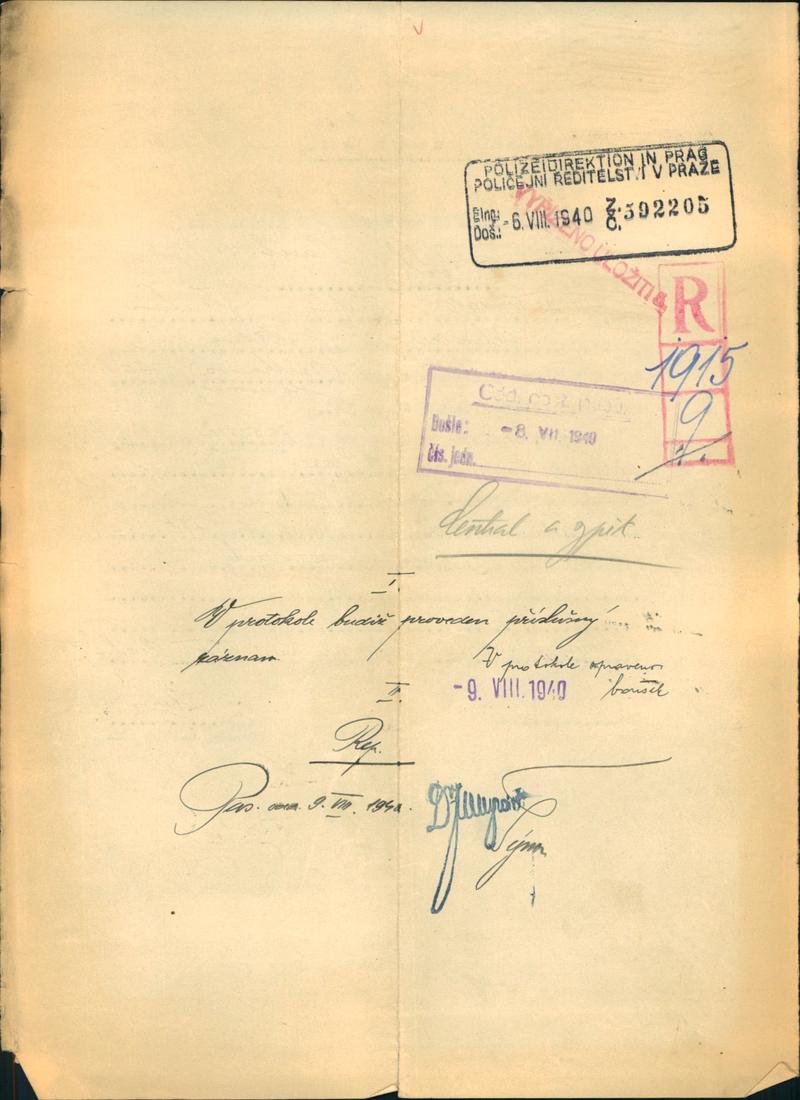 POLIZEIDIREKTION IN PRAG
POLICEJNÍ ŘEDITELSTVÍ V PRAZE
Eing.:
Doš.: -6. VIII. 1940 Z. 592205
Č.
VYŘÍZENO ULOŽITI
R
1915
9
Došlo: -8. VII. 1940
čís. jedn.
a zpět.
I.
V protokole budiž proveden příslušný
záznam.
V protokole opraveno
-9. VIII. 1940
II.
Rep.
Pas. 9. VIII. 1940.